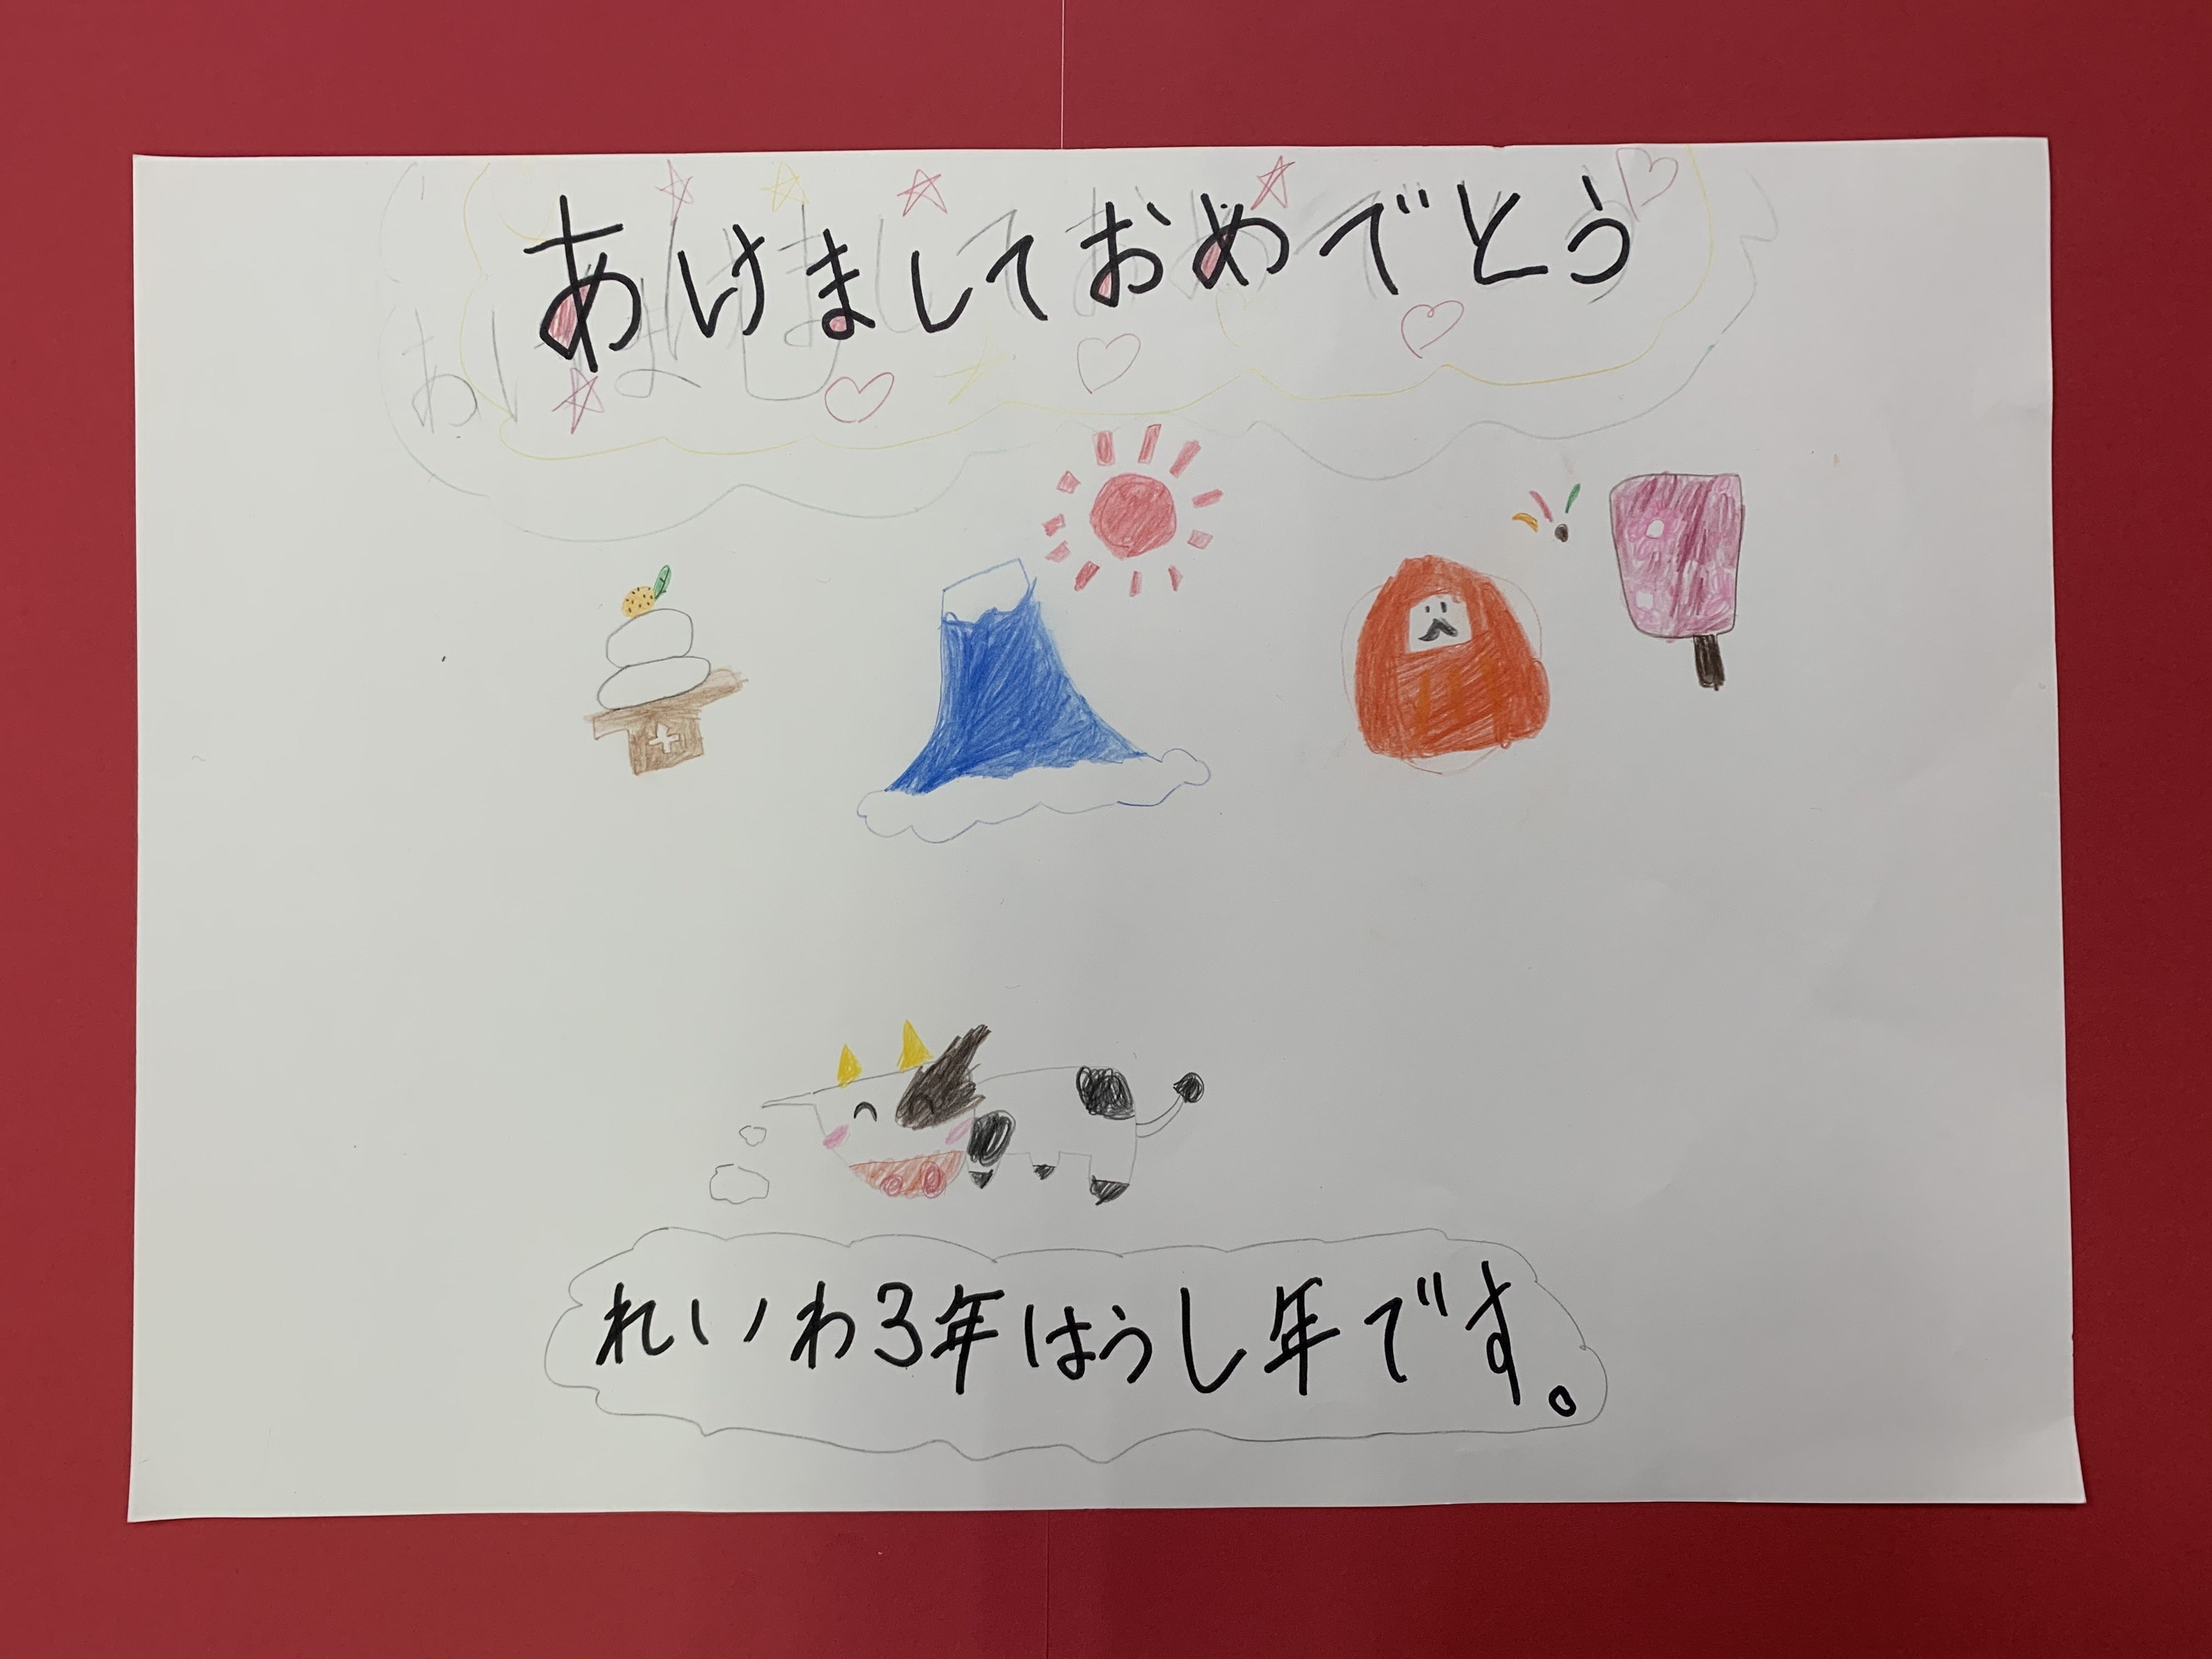 あけましておめでとう
れいわ3年はうし年です。